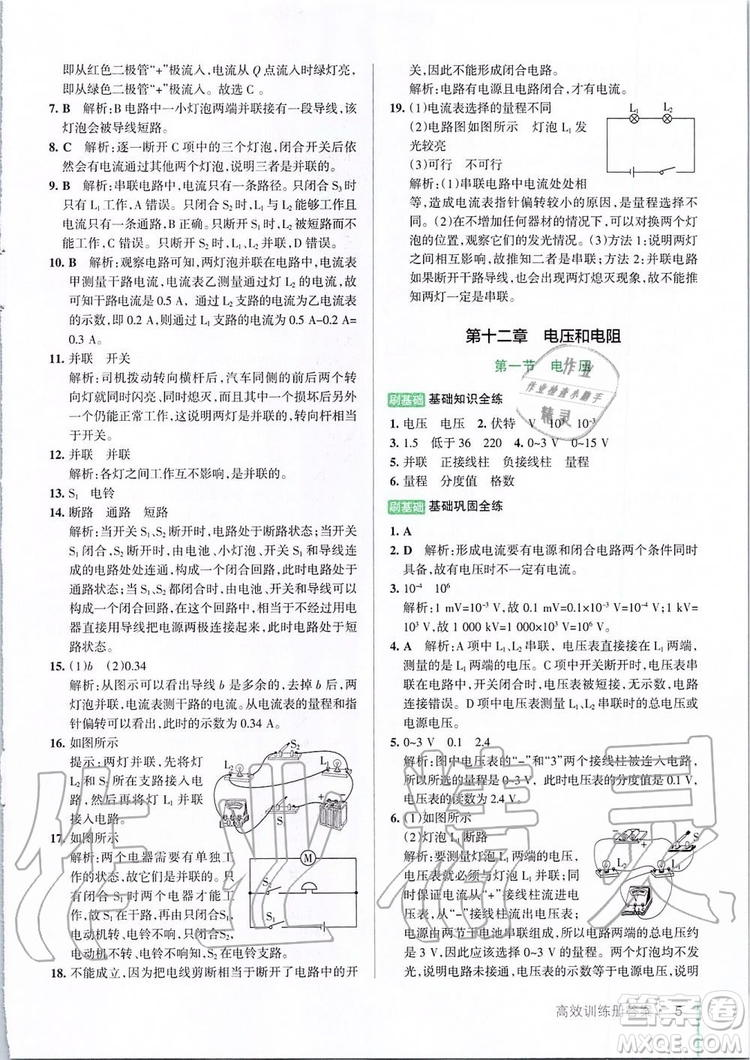 即从红色二极管“+”极流入，电流从 Q 点流入时绿灯亮，
即从绿色二极管“+”极流入。故选 C。
7. B 解析：B 电路中一小灯泡两端并联有一段导线，该
灯泡会被导线短路。
8. C 解析：逐一断开 C 项中的三个灯泡，闭合开关后依
然会有电流通过其他两个灯泡，是并联的。
9. B 解析：串联电路中电流只有一条路径。只闭合 S₃ 时
只有 L₁ 工作，A 错误。只闭合 S₁ 时，L₁ 与 L₂ 能够工作且
只有一条通路，B 正确。只断开 S₁ 时，L₂ 被短路而不能
工作，C 错误。只断开 S₂ 时，L₁、L₂ 并联，D 错误。
10. B 解析：观察电路可知，两灯在电路中并联，电流表
甲测量干路电流，电流表乙测量通过灯 L₂ 的电流，故
可知干路电流为 0.5 A，L₂ 支路的电流为乙电流表
的示数，即为 0.2 A，故通过 L₁ 支路的电流为 0.5 A-0.2 A=
0.3 A。
11. 并联 开关
解析：司机拨动转向横杆后，汽车同一侧前、后的转向
灯就同时闪亮，同时熄灭，而其中的一个损坏后另一
个仍能发光，说明这两个灯的连接方式为并联。
12. 并联 并联
解析：各灯之间工作互不影响，是并联的。
13. S₁ 电铃
14. 断路 通路 短路
解析：当开关 S₁、S₂ 断开时，电路处于断路状态。当开
关 S₁ 闭合、S₂ 断开时，由电池、小灯泡、开关 S₁ 和导线
构成的电路处处连通，构成一个闭合回路，此时电路处于
通路状态；当开关 S₁、S₂ 都闭合时，由电池、开关和导线可以
构成一个闭合回路，这种由于电流不经过任何用电
器直接用导线把电源两极连接起来，此时电路处于短
路状态。
15. (1)b (2)0.34
解析：从图示可以看出导线 b 是多余的，去掉后，两灯
泡并联，电流表测干路的电流。从电流表的量程和
指针偏转可以看出，此时的示数为 0.34 A。
16. 如图所示
提示：两灯并联，先将灯
L₂ 和 S₂ 所在支路接入电
路中，然后将灯 L₁ 并联
接入电路。
17. 如图所示
解析：两个电器需要并
联，两个开关都在支路
上，分别控制两个用电
器。
18. 不能成立，因为把电线剪断相当于断开了电路中的开
关，因此不能形成闭合电路。
解析：有电源且电路闭合，才能有电流。
19. (1)电流表选择的量程不同
(2)电路图如图所示 灯泡 L₁ 发
光较亮
(3)可行 不可行
解析：串联电路中电流处处相
等，造成电流表指针偏转较小的原因，是量程变大
了。(2)在不增加任何器材的情况下，可以交换两个灯
泡的位置，观察它们的发光情况。(3)方法 1：说明两灯
之间相互影响，故能推知二者是串联；方法 2：并联电
路如果断开干路导线，也会出现两灯熄灭现象，故不能推
知两灯一定是串联。
第十二章 电压和电阻
第一节 电压
刷基础 基础知识全练
1. 电压 电压 2. 伏特 V 10³ 10⁻³
3. 1.5 低于 36 220 4. 0~3 V 0~15 V
5. 并联 正接线柱 负接线柱 量程
6. 量程 分度值 格数
刷基础 基础巩固全练
1. A
2. D 解析：形成电流要有电源和闭合电路两个条件同时
具备，故有电压时不一定有电流。
3. 10⁻⁴ 10⁶
解析：1 mV=10⁻³ V，故 0.1 mV=0.1×10⁻³ V=10⁻⁴ V；1 kV=
10³ V，故 1 000 kV=1 000×10³ V=10⁶ V。
4. A 解析：A 项中 L₁、L₂ 串联，电压表直接接在 L₁ 两端，
测量的是 L₁ 两端的电压，A 正确。B 项中电压表接在电
路中，开关闭合时，电压表被短接，无示数，B 错误。C 项
中两灯并联，开关闭合时，电压表的示数为总电压或
电源电压。
5. 0~3 V 0.1 2.4
解析：图中电压表的“-”和“3”两个接线柱被连入电路，
所以所选的量程是 0~3 V，此时电压表的分度值是 0.1 V，
电压表的读数为 2.4 V。
6. (1)如图所示
(2)灯泡 L₁ 断路
解析：要测量灯泡 L₁ 两端的电压，
电压表就必须与灯泡 L₁ 并联，同
时保证电流从“+”接线柱流进电
压表，从“-”接线柱流出电压表；
电源由两节干电池串联组成，所以电路两端的总电压
为 3 V，因此应该选择 0~3 V 的量程。两个灯泡均不发
光，说明电路未接通，电压表没有示数，说明
高效训练册答案 5
M
S₁
S₂
L₁
L₂
作业精灵
作业检查小助手
答案圈
MXQE.COM